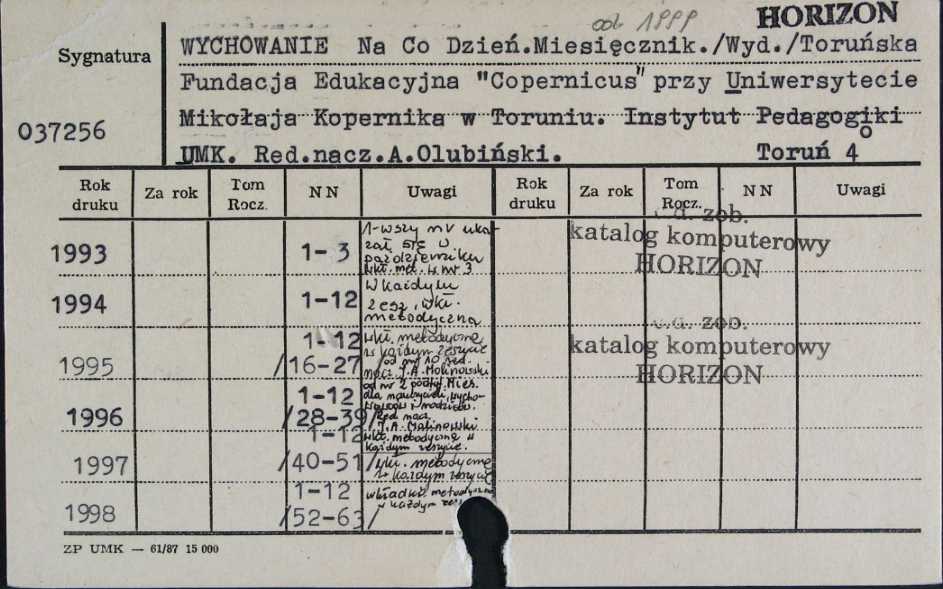 od 1999 HORIZON
Sygnatura
WYCHOWANIE Na Co Dzień.Miesięcznik./Wyd./Toruńska
Fundacja Edukacyjna "Copernicus" przy Uniwersytecie
037256
Mikołaja Kopernika w Toruniu. Instytut Pedagogiki
UMK. Red.nacz.A.Olubiński. Toruń 4°
Rok druku Za rok Tom Rocz. NN Uwagi Rok druku Za rok Tom Rocz. NN Uwagi
1993 1-3
1-wszy nr uka-
zał się w
październiku
wkł. met. w nr 3
1994 1-12
W każdym
zesz. wkł.
metodyczna
1995 1-12
/16-27/
wkł. metodyczna
w każdym zeszycie
od nr 10 red.
nacz. J.A. Malinowski
1996 1-12
/28-39/
od nr 2 podtyt. Mies.
dla nauczycieli, wycho-
wawców i rodziców.
Red. nacz.
J.A. Malinowski
wkł. metodyczna w
każdym zeszycie.
1997 1-12
/40-51/
wkł. metodyczna
w każdym zeszycie
1998 1-12
/52-63/
wkładka metodyczna
w każdym
c.d. zob.
katalog komputerowy
HORIZON
c.d. zob.
katalog komputerowy
HORIZON
ZP UMK — 61/87 15 000